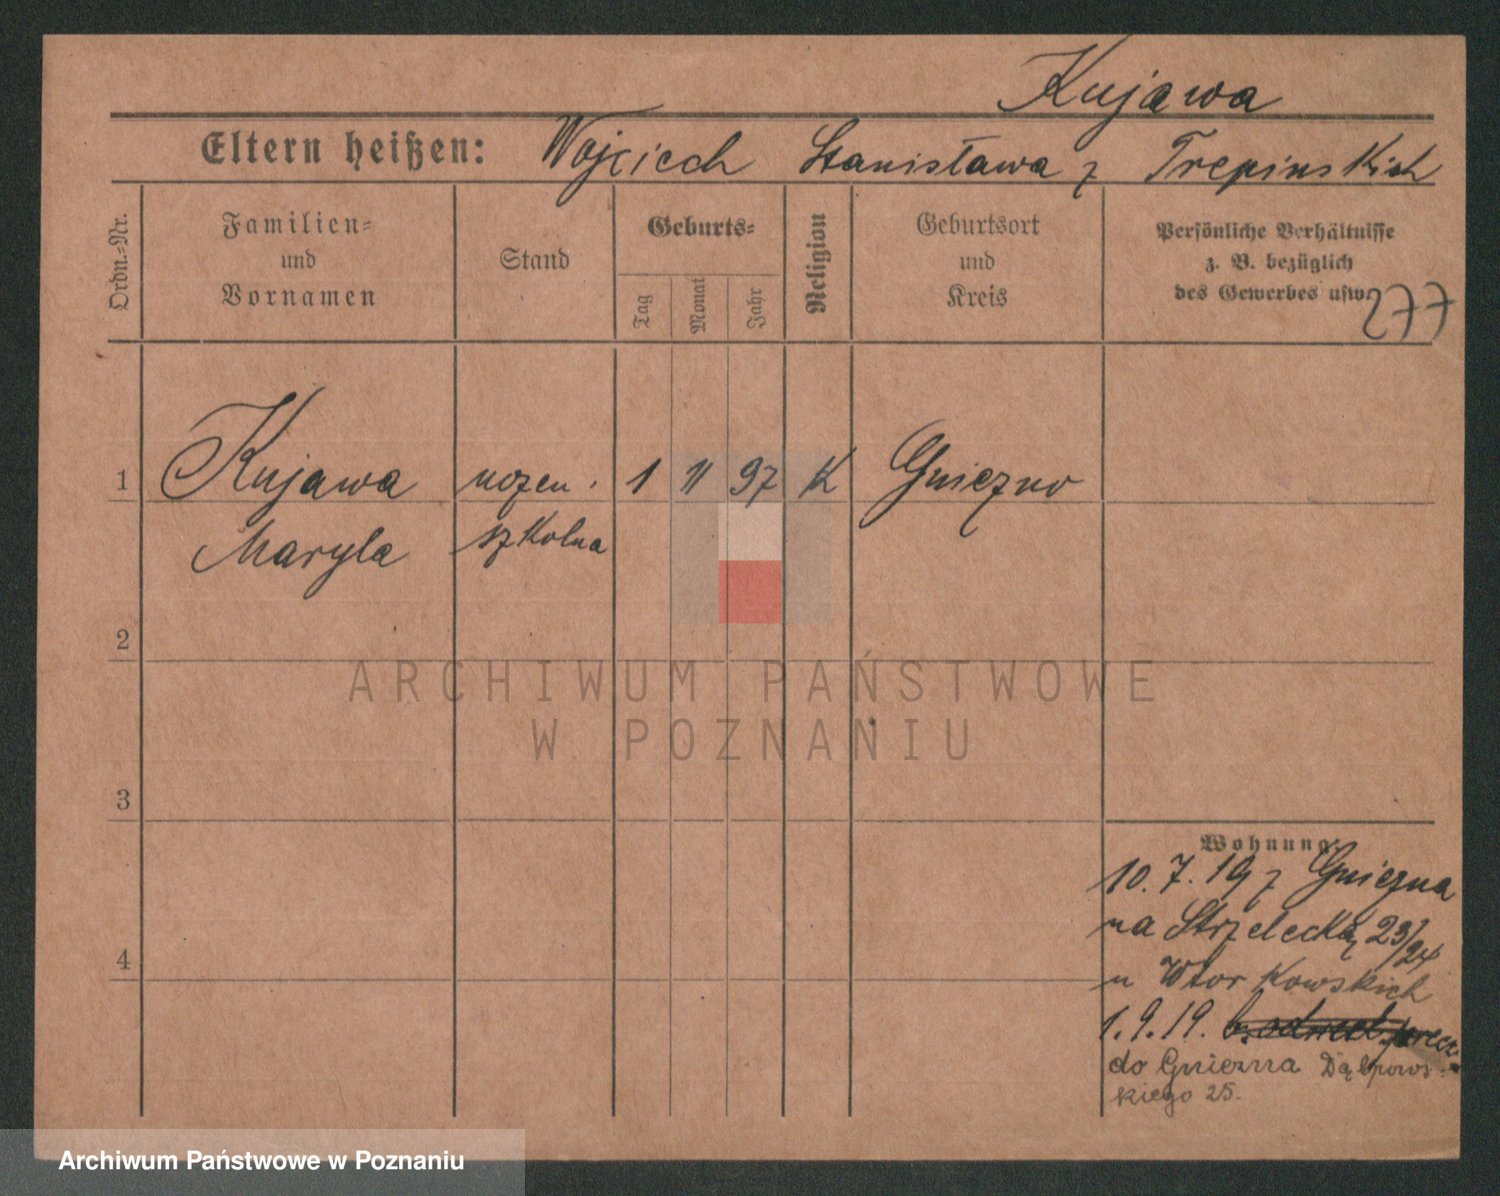 Kujawa
Eltern heißen: Wojciech Stanisława z Trepinskich
Ordn.-Nr.
Familien-
und
Vornamen
Stand
Geburts-
Tag
Monat
Jahr
Religion
Geburtsort
und
Kreis
Persönliche Verhältnisse
z. B. bezüglich
des Gewerbes usw.
277
1 Kujawa uczen. 1 11 97 K Gniezno
Maryla szkolna
2
3
4
Wohnung:
10. 7. 19 z Gniezna
na Strzelecką 23/24
u Wtorkowskich
1. 9. 19.
do Gniezna Dąbrows-
kiego 25.
ARCHIWUM PAŃSTWOWE
W POZNANIU
Archiwum Państwowe w Poznaniu